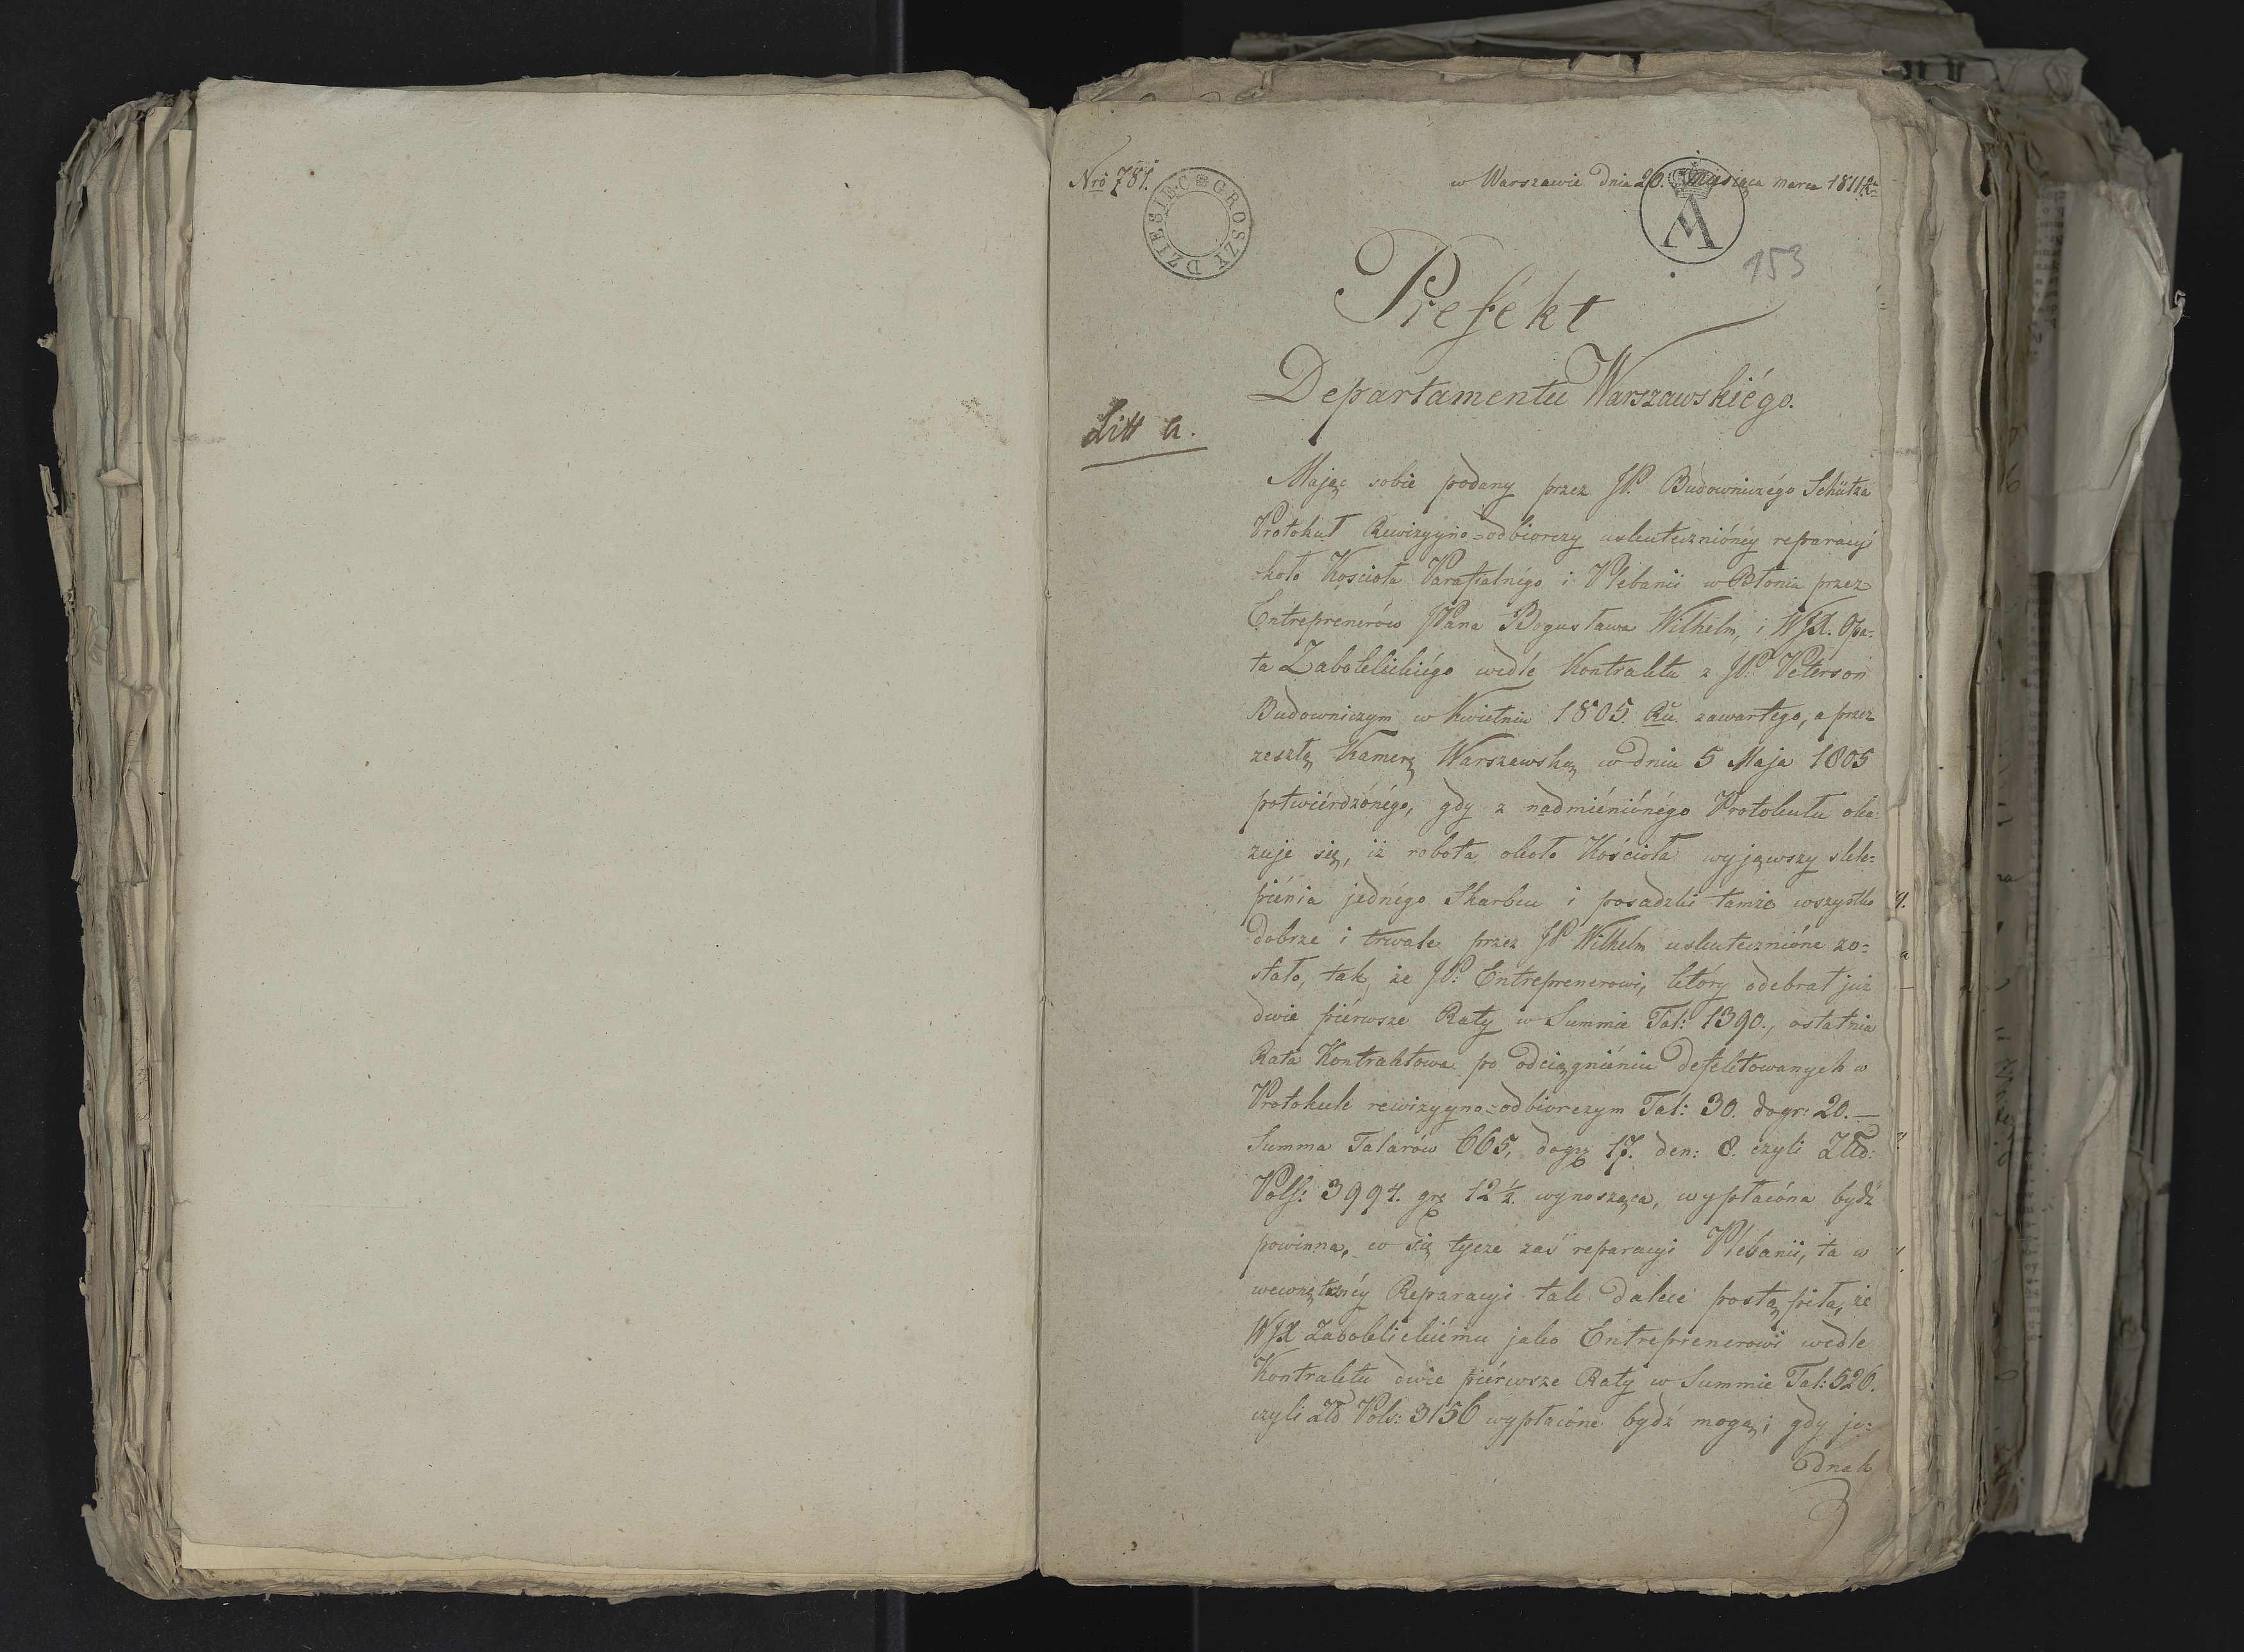 Nrō 781.
w Warszawie dnia 20. Miesiąca marca 1811 R
GROSZY DZIESIĘC
153
Prefekt
Departamentu Warszawskiégo.
Litt a.
Mając sobie podany przez JP. Budowniczégo Schütza
Protokuł Rewizyyno=odbiorczy uskutecznionéy reparacyi
około Kościoła Parafialnégo i Plébanii w Błoniu przez
Entreprenerów JPana Bogusława Wilhelm, i WJX. Opa=
ta Zaboklickiégo wedle Kontraktu z JP. Peterson
Budowniczym w Kwietniu 1805. Ru. zawartego, a przez
zeszłą Kamerę Warszawską w dniu 5 Maja 1805
potwiérdzónégo, gdy z nadmiéniónégo Protokułu oka=
zuje się, iż robota około Kościoła wyjąwszy skle=
piénia jednégo Skarbcu i posadzki tamże wszystko
dobrze i trwale przez JP Wilhelm uskutecznióne zo=
stało, tak, że JP. Entreprenerowi, który odebrał już
dwie piérwsze Raty w Summie Tal: 1390., ostatnia
Rata Kontraktowa po odciągniéniu defektowanych w
Protokule rewizyyno=odbiorczym Tal: 30. dogr: 20.—
Summa Talarów 665, dogr 17. den: 8. czyli Złło:
Pols: 3994. gr 12 1/2. wynosząca, wypłacóna bydź
powinna, co się tycze zaś reparacyi Plébanii, ta w
wewnętrznéy Reparacyi tak daleće postąpiła, że
WJX Zaboklickiému jako Entreprenerowi wedle
Kontraktu dwie piérwsze Raty w Summie Tal: 526.
czyli Zło Pols: 3156 wypłacóne bydź mogą; gdy je=
dnak